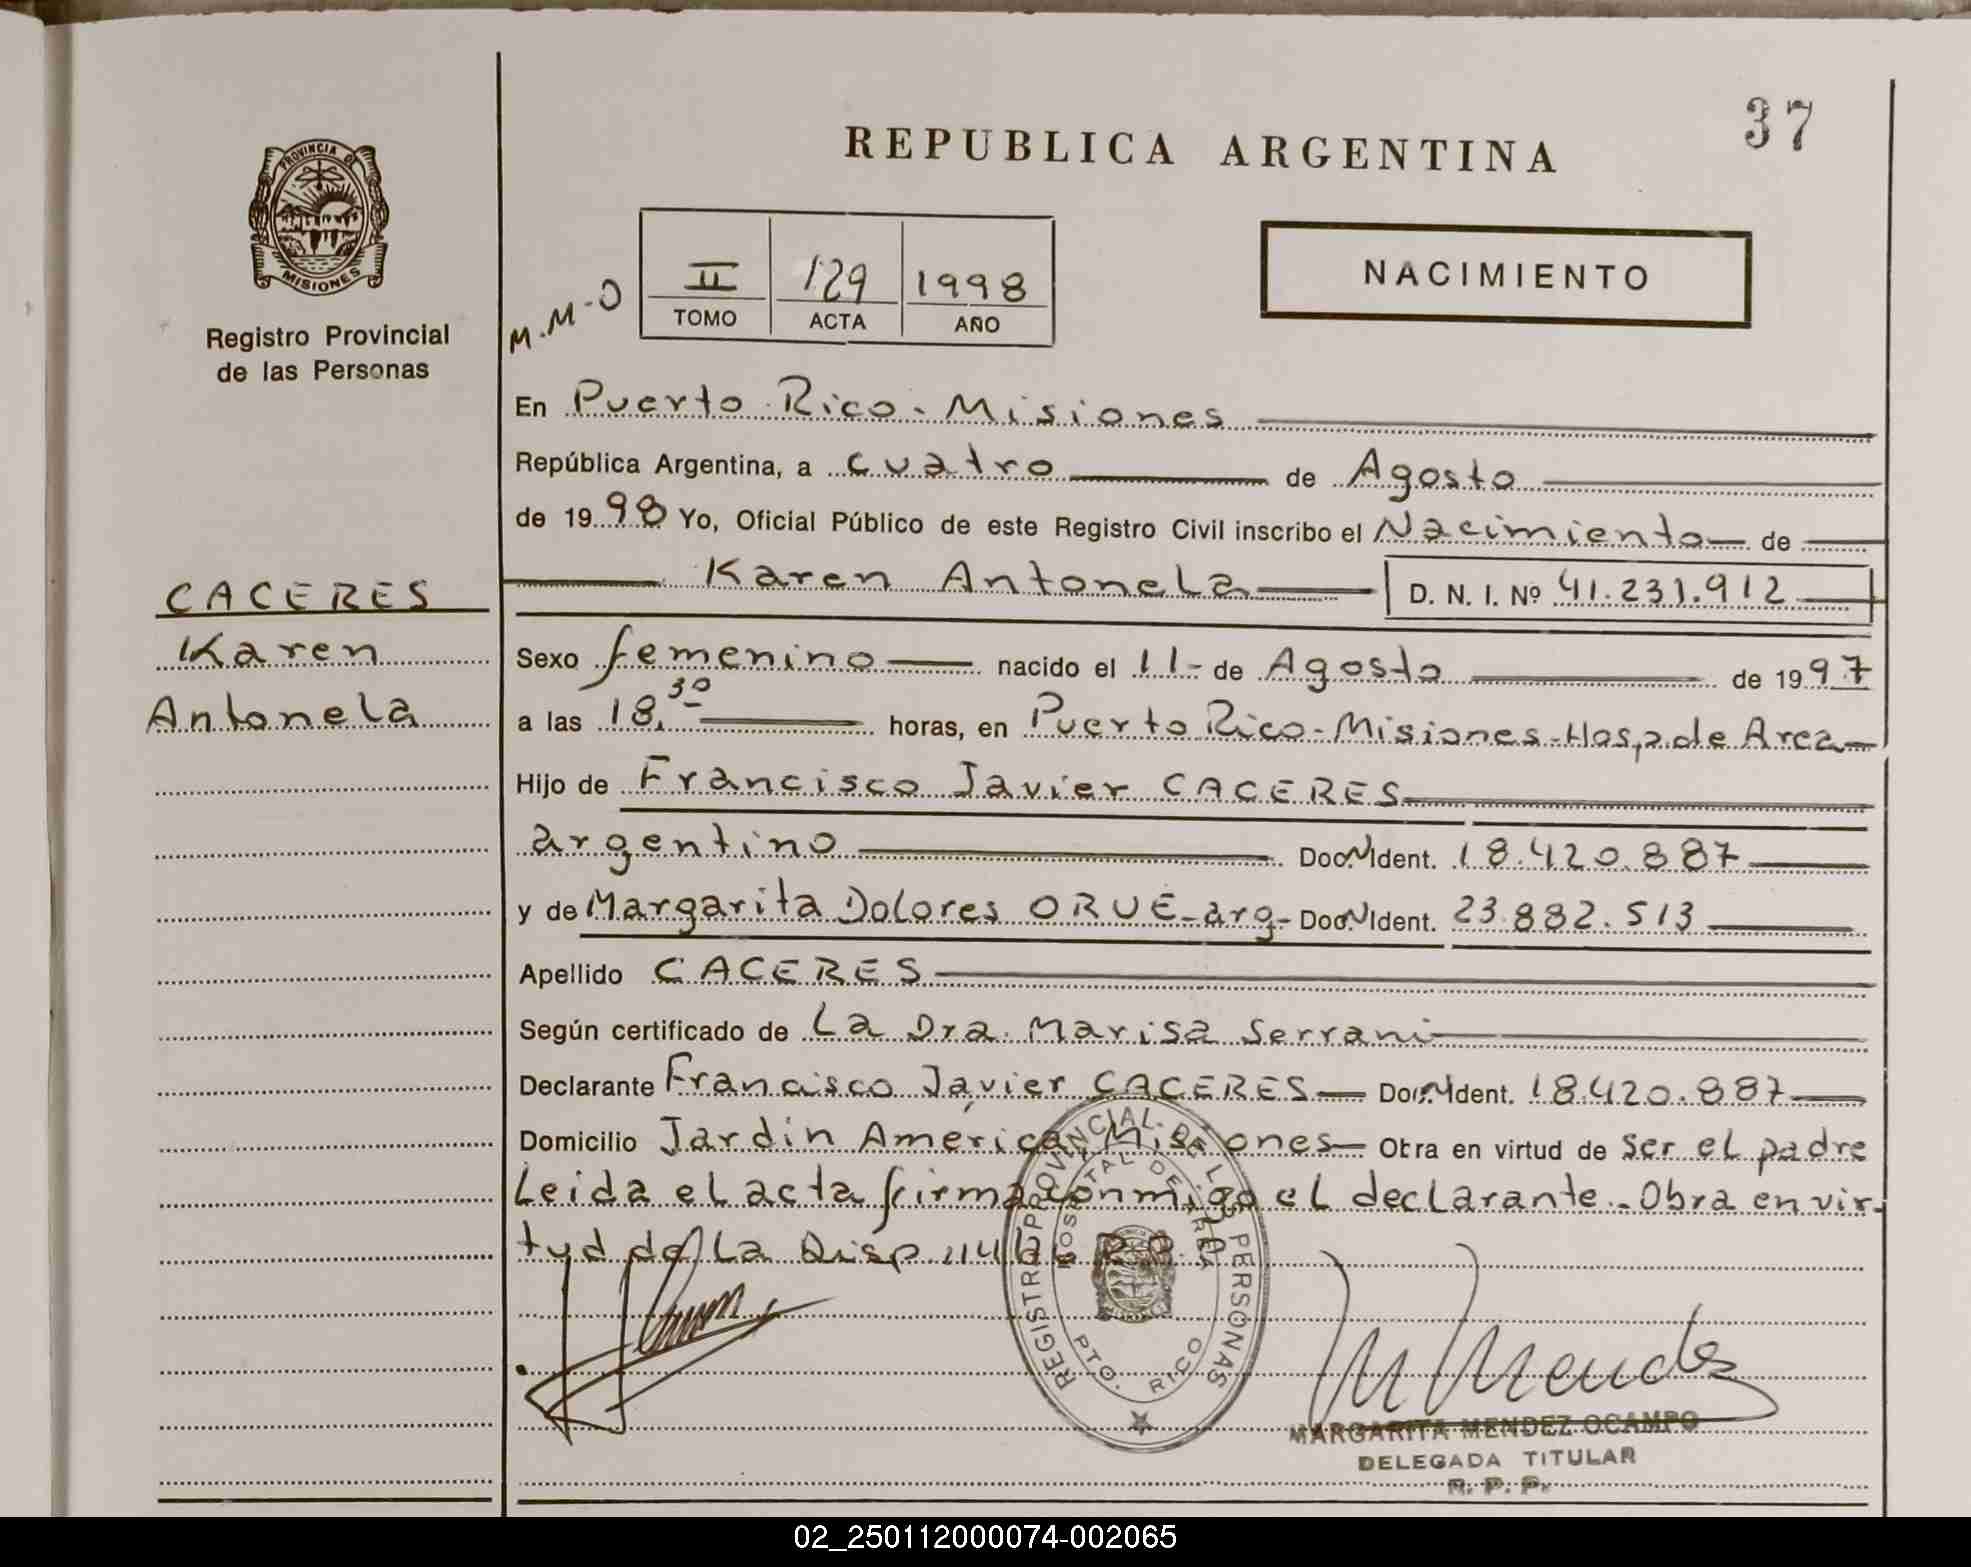 37
REPUBLICA ARGENTINA
PROVINCIA DE
MISIONES
Registro Provincial
de las Personas
M.M-O
II 129 1998
TOMO ACTA AÑO
NACIMIENTO
En Puerto Rico - Misiones
República Argentina, a cuatro de Agosto
de 1998 Yo, Oficial Público de este Registro Civil inscribo el Nacimiento de
Karen Antonela D. N. I. Nº 41.231.912
CACERES
Karen
Antonela
Sexo femenino nacido el 11- de Agosto de 1997
a las 18.30 horas, en Puerto Rico - Misiones - Hosp. de Area
Hijo de Francisco Javier CACERES
argentino Doc. N Ident. 18.420.887
y de Margarita Dolores ORUE - arg - Doc. N Ident. 23.882.513
Apellido CACERES
Según certificado de La Dra. Marisa Serrani
Declarante Francisco Javier CACERES Doc. N Ident. 18.420.887
Domicilio Jardin América Misiones Obra en virtud de ser el padre
Leida el acta firma conmigo el declarante. Obra en vir-
tud de La Disp.
REGISTRO PROVINCIAL DE LAS PERSONAS
HOSPITAL DE AREA
PTO. RICO
M Mendez
MARGARITA MENDEZ OCAMPO
DELEGADA TITULAR
R. P. P.
02_250112000074-002065